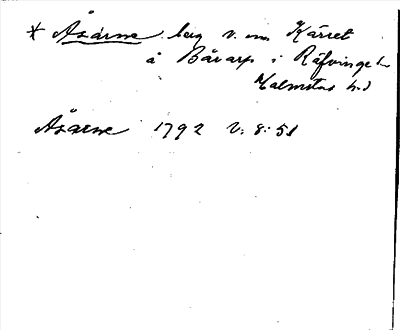 * Åsarne berg v. om Kärret
å Bårarp i Räfvinge
Halmstads h.d
Åsarne 1792 V: 8: 51